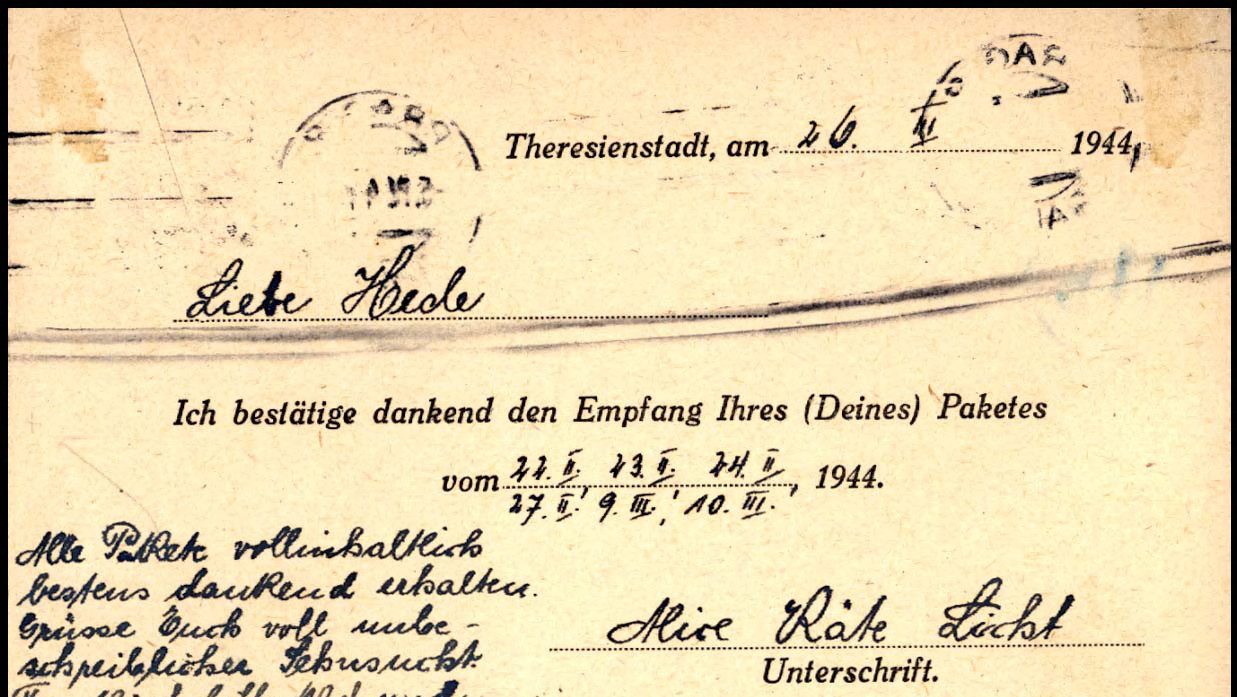 Theresienstadt, am 26. III 1944,
Liebe Hede
Ich bestätige dankend den Empfang Ihres (Deines) Paketes
vom 22. II. 23. II. 24. II, 1944.
27. II, 9. III., 10. III.
Alle Pakete vollinhaltlich
bestens dankend erhalten.
Grüsse Euch voll unbe-
schreiblicher Sehnsucht.
Alice Käte Licht
Unterschrift.